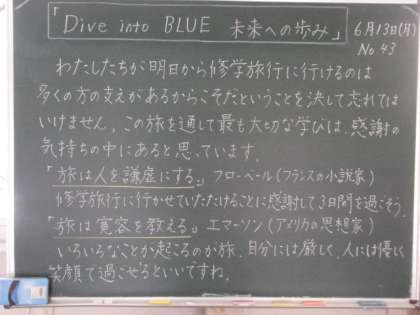 「Dive into BLUE 未来への歩み」
6月13日(月)
No 43
わたしたちが明日から修学旅行に行けるのは
多くの方の支えがあるからこそだということを決して忘れては
いけません。この旅を通して最も大切な学びは、感謝の
気持ちの中にあると思っています。
「旅は人を謙虚にする。」フローベール(フランスの小説家)
修学旅行に行かせていただけることに感謝して3日間を過ごそう。
「旅は寛容を教える。」エマーソン(アメリカの思想家)
いろいろなことが起こるのが旅。自分には厳しく、人には優しく
笑顔で過ごせるといいですね。